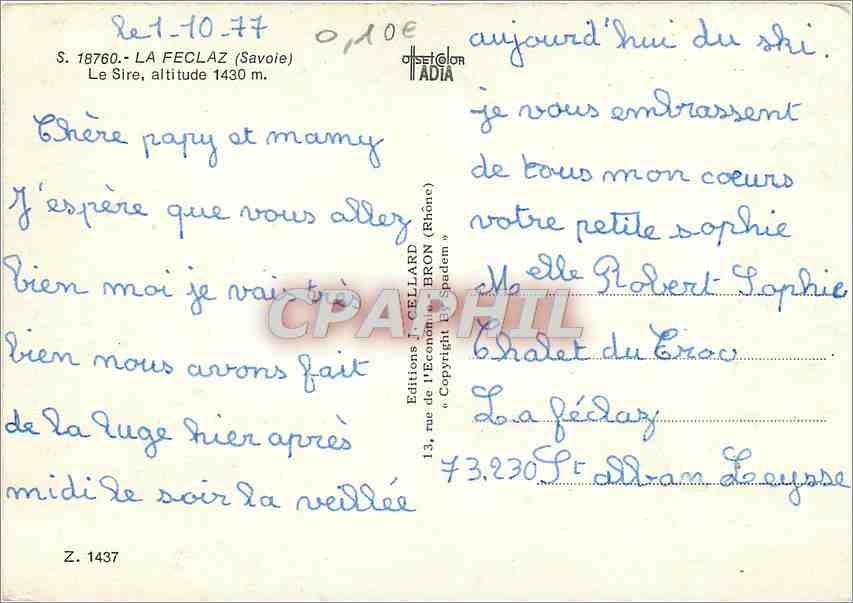 le 1-10-77
0,10€
S. 18760.- LA FECLAZ (Savoie)
Le Sire, altitude 1430 m.
Chère papy et mamy
J'espère que vous allez
bien moi je vais très
bien nous avons fait
de la luge hier après
midi le soir la veillée
Z. 1437
OFFSETCOLOR
ADIA
Editions J. CELLARD
13, rue de l'Economie, BRON (Rhône)
« Copyright By Spadem »
CPAPHIL
aujourd'hui du ski.
je vous embrassent
de tous mon cœurs
votre petite sophie
Melle Robert Sophie
Chalet du Croc
La féclaz
73.230 St alban Leysse